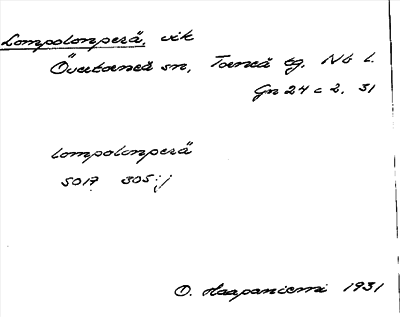 Lompolonperä, vik
Övertorneå sn, Torneå tg. Nb l.
Gn 24 c 2. 31
lompolonperä
5017 305:j
O. Haapaniemi 1931